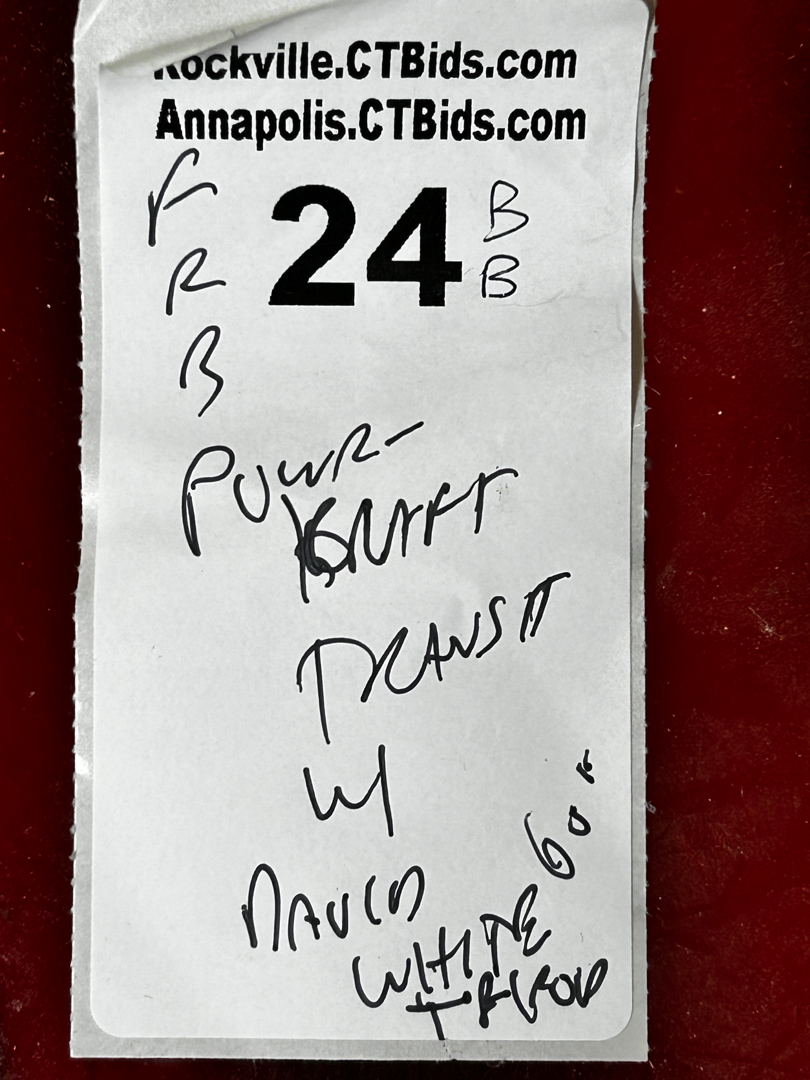 Rockville.CTBids.com
Annapolis.CTBids.com
F
R
B
24
B
B
POWR-
KRAFT
TRANSIT
W/
DAVID
WHITE
TRIPOD
60"